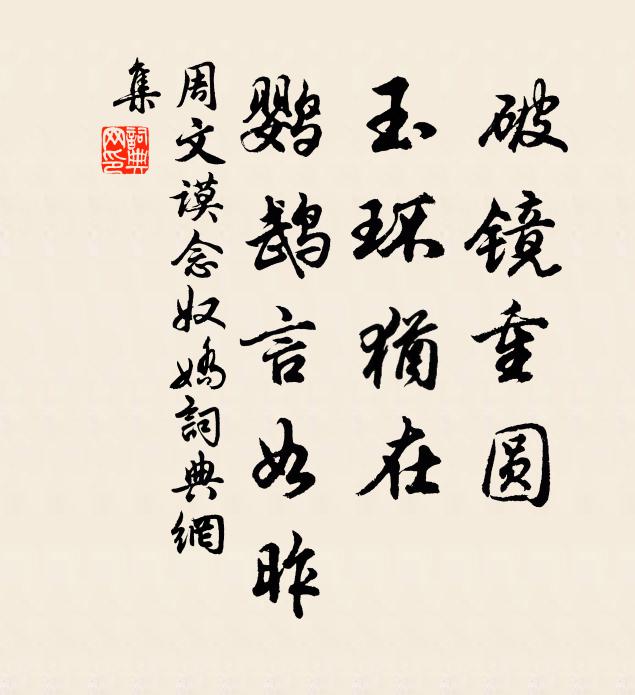 破镜重圆
玉环犹在
鹦鹉言如昨
周文谟念奴娇詞典網
集
詞典网印